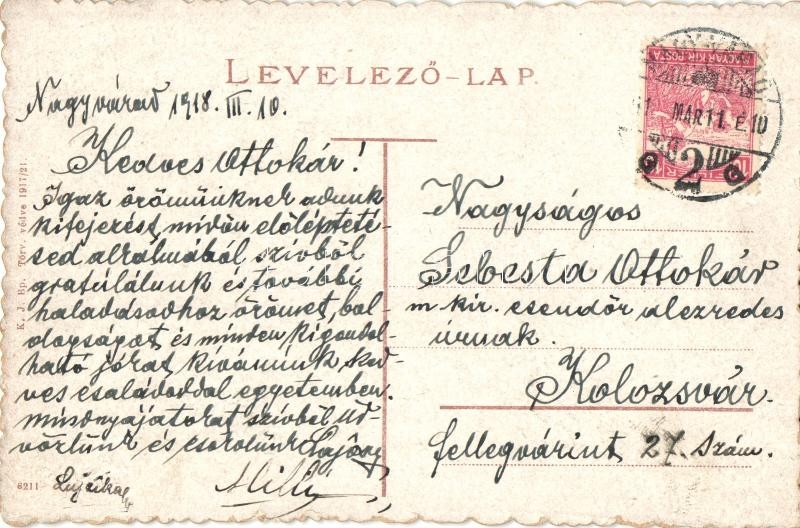 LEVELEZŐ-LAP.
Nagyvárad 1918. III. 10.
Kedves Ottokár!
Igaz örömünknek adunk
kifejezést, midőn előlépteté-
sed alkalmából szívből
gratulálunk és további
haladásodhoz örömet, bol-
dogságot, és minden kigondol-
ható jókat kívánunk ked-
ves családoddal egyetemben.
Mindnyájatokat szívből üd-
vözlünk és csókolunk Lajos
Milli
Lujcika
Nagyságos
Sebesta Ottokár
m kir. csendőr alezredes
úrnak.
Kolozsvár.
fellegvári út 27. szám.
MAGYAR KIR. POSTA
MAR 11. É. 10
2
K. J. Bp. Törv. védve 1917/21
6211